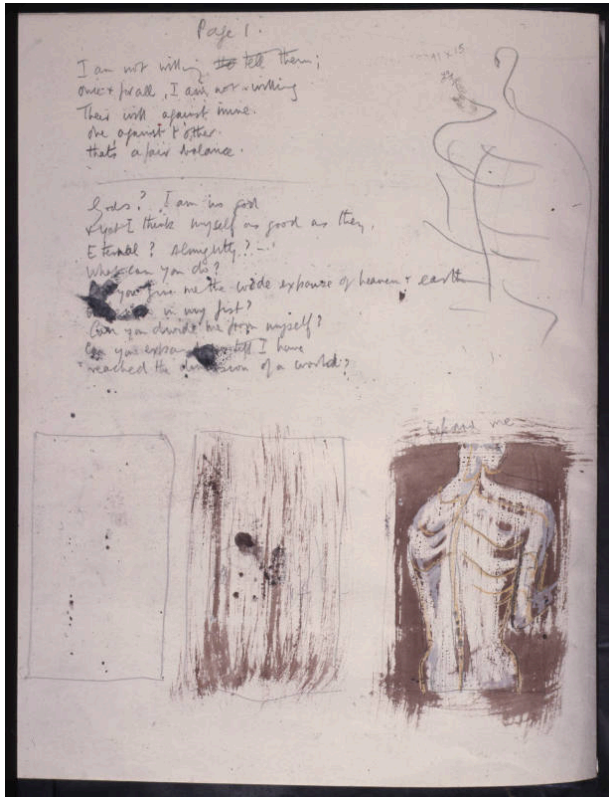 Page 1.
I am not willing to tell them;
once & for all, I am not willing
Their will against mine.
one against t'other.
that's a fair balance.
Gods? I am no god
& yet I think myself as good as they.
Eternal? Almighty?
What can you do?
you give me the wide expanse of heaven & earth
in my fist?
Can you divide me from myself?
Can you I have
reached the dimension of a world?
me